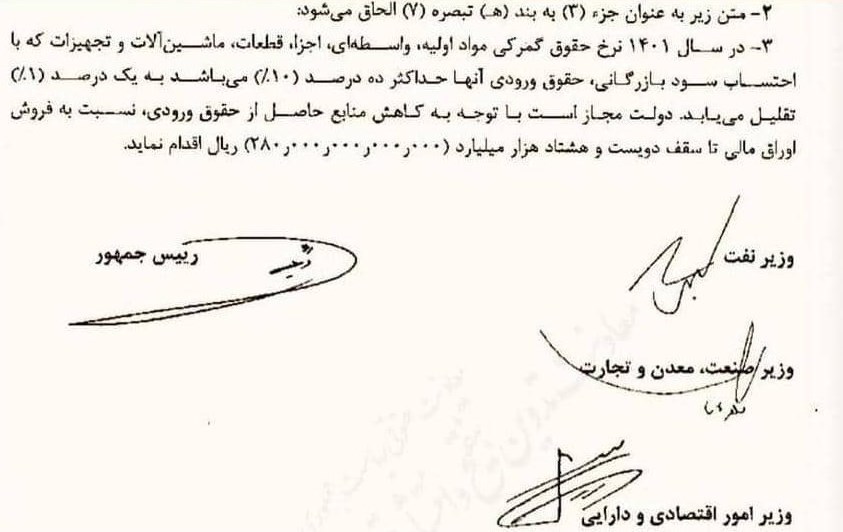 ۲- متن زیر به عنوان جزء (۳) به بند (هـ) تبصره (۷) الحاق می‌شود:
۳- در سال ۱۴۰۱ نرخ حقوق گمرکی مواد اولیه، واسطه‌ای، اجزا، قطعات، ماشین‌آلات و تجهیزات که با
احتساب سود بازرگانی، حقوق ورودی آنها حداکثر ده درصد (۱۰٪) می‌باشد به یک درصد (۱٪)
تقلیل می‌یابد. دولت مجاز است با توجه به کاهش منابع حاصل از حقوق ورودی، نسبت به فروش
اوراق مالی تا سقف دویست و هشتاد هزار میلیارد (۲۸۰٫۰۰۰٫۰۰۰٫۰۰۰٫۰۰۰) ریال اقدام نماید.
وزیر نفت
رییس جمهور
وزیر صنعت، معدن و تجارت
وزیر امور اقتصادی و دارایی